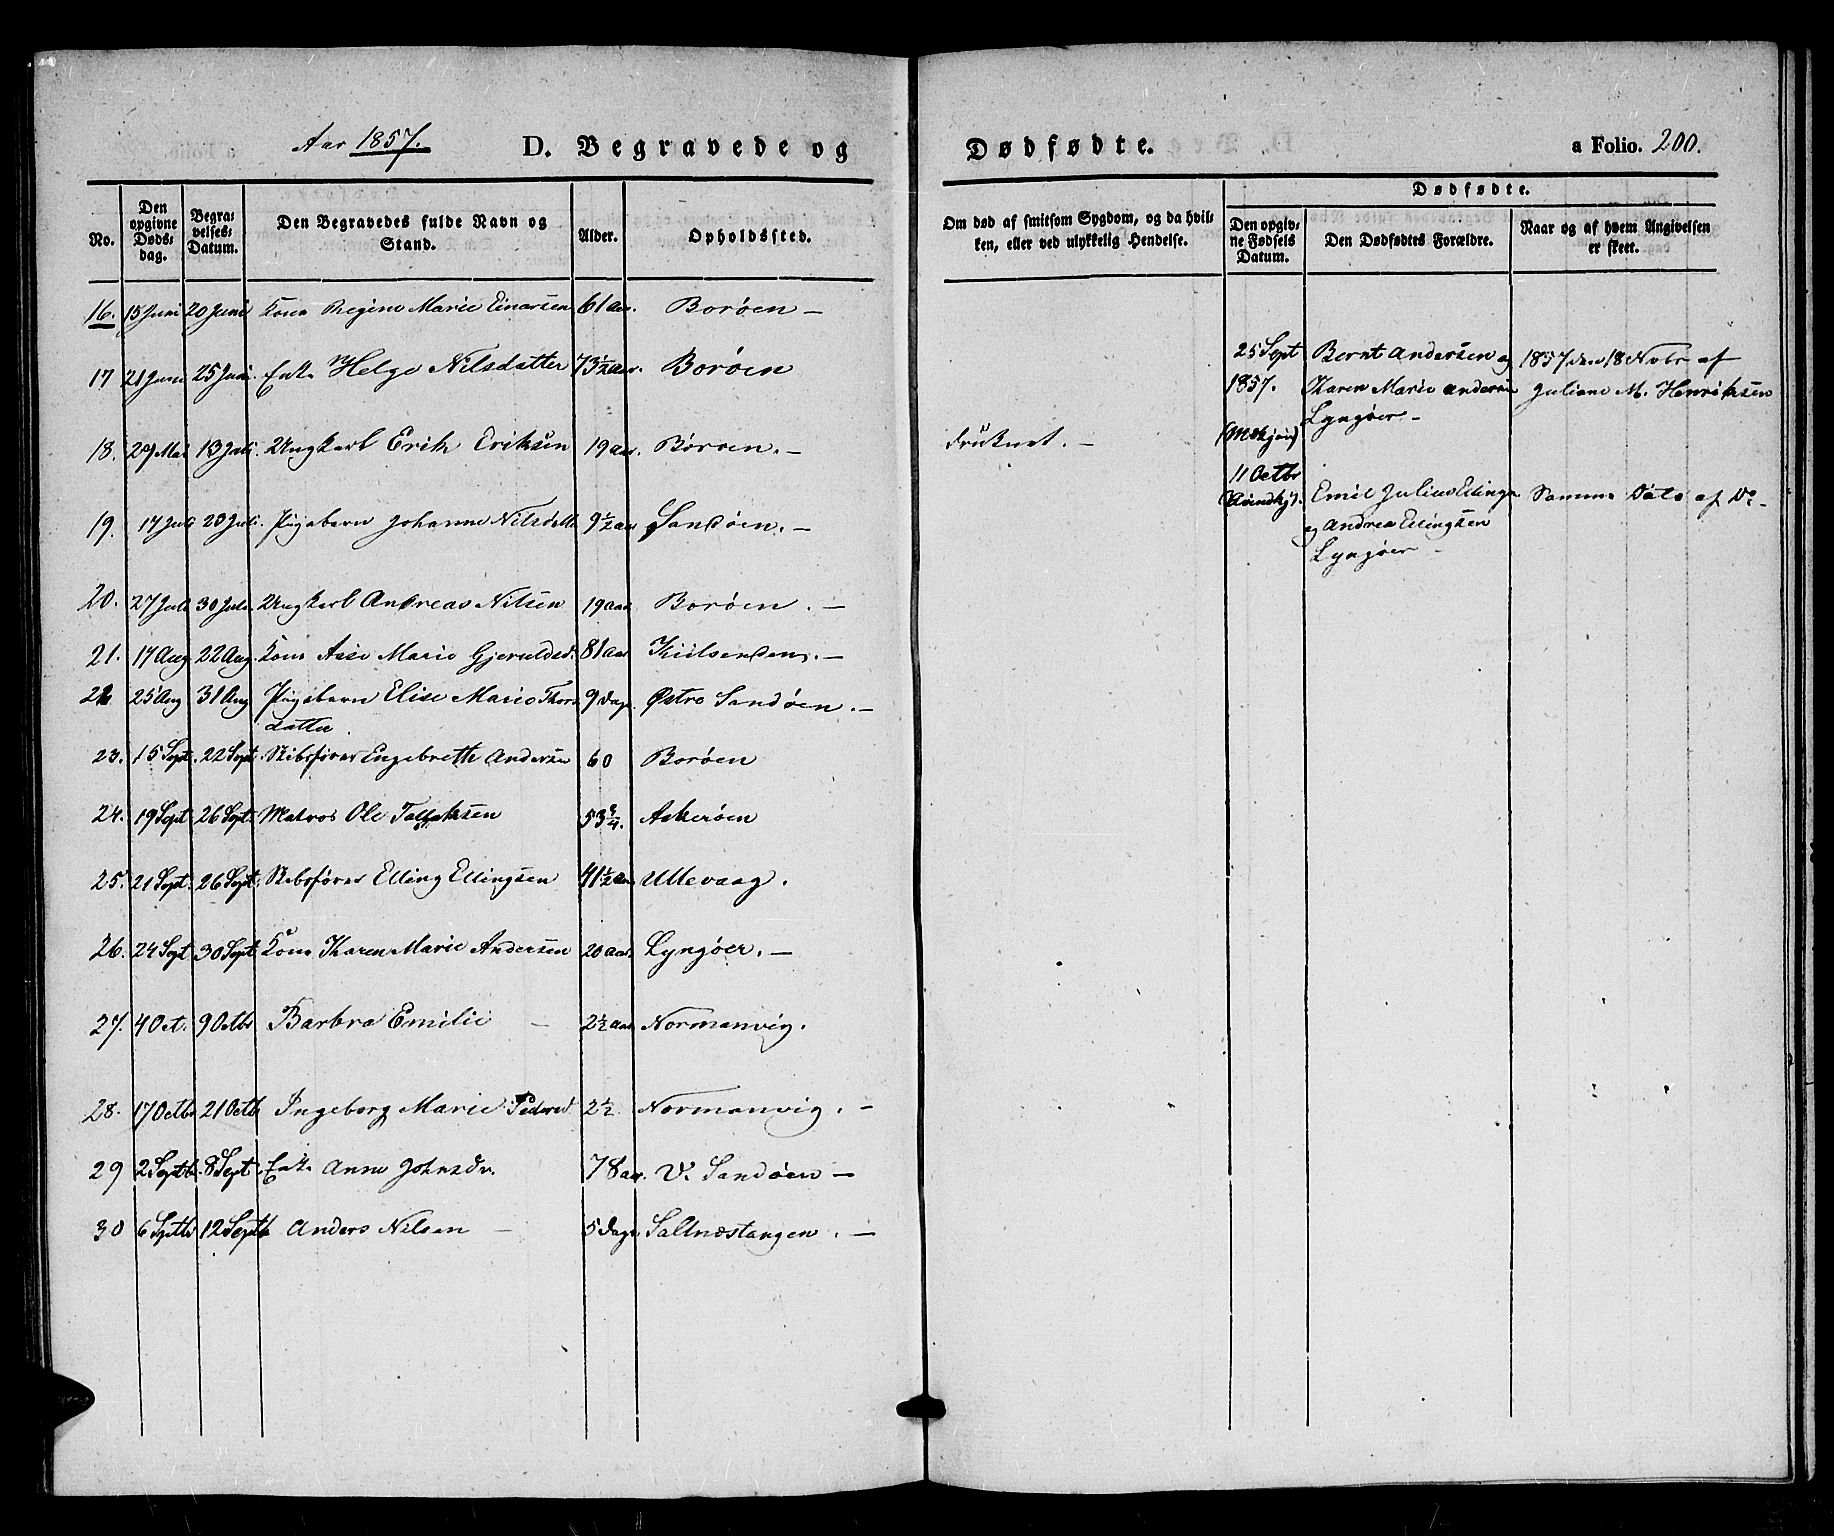 Aar 1857. D. Begravede og
No. Den opgivne Døds-dag. Begra-velses-Datum. Den Begravedes fulde Navn og Stand. Alder. Opholdssted.
16. 15 Juni 20 Juni Kone Regine Marie Einarsen 61 aar. Borøen –
17 21 Juni 25 Juni. Enke Helge Nilsdatter 73½ aar. Borøen
18. 29 Mai 13 Juli. Ungkarl Erik Eriksen 19 aar. Borøen. –
19. 17 Juli 23 Juli. Pigebarn Johanne Nilsdatt 9½ aar Sandøen. –
20. 27 Juli 30 Juli. Ungkarl Andreas Nilsen 19 aar Borøen. –
21. 17 Aug 22 Aug. Kone Aase Marie Gjeruldsd. 81 aar Kiilsenden. –
22 25 Aug 31 Aug Pigebarn Elise Marie Thors
datter 9 Dage. Østre Sandøen. –
23. 15 Sept. 22 Sept. Skibsfører Engebreth Andersen 60 Borøen
24. 19 Sept 26 Sept. Matros Ole Tallaksen 53¾. Askerøen
25. 21 Sept. 26 Sept. Skibsfører Elling Ellingsen 41½ aar Ullevaag.
26. 24 Sept 30 Sept Kone Karen Marie Andersen 20 aar. Lyngøer. –
27. 4 Oct. 9 Octbr Barbra Emilie – 2½ aar Normanvig.
28. 17 Octbr 21 Octb Ingeborg Marie Pedersd. 2½. Normanvig. –
29 2 Septb. 8 Sept. Enke Anne Johnsdr. 78 aar. V. Sandøen –
30 6 Septb 12 Septb Anders Nilsen – 5 Dage. Saltnæstangen. –
Dødfødte. a Folio. 200.
Dødfødte.
Om død af smitsom Sygdom, og da hvil-
ken, eller ved ulykkelig Hendelse.
Den opgiv-
ne Fødsels
Datum.
Den Dødfødtes Forældre.
Naar og af hvem Angivelsen
er skeet.
druknet. –
25 Sept
1857.
(Mskjøn)
Bernt Andersen og
Karen Marie Andersen
Lyngøer –
1857 den 18 Novbr af
Juliane M. Henriksen
11 Octbr
(Kvindkj).
Emil Julius Ellings
og Andrea Ellingsen
Lyngøer –
Samme Dato af Do –